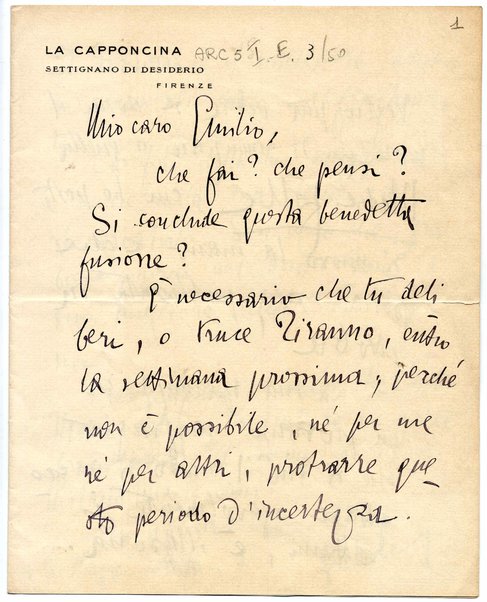 1
LA CAPPONCINA
ARC 5 I. E. 3/50
SETTIGNANO DI DESIDERIO
FIRENZE
Mio caro Emilio,
che fai? che pensi?
Si conclude questa benedetta
fusione?
È necessario che tu deli
beri, o truce Tiranno, entro
la settimana prossima; perché
non è possibile, né per me
né per altri, protrarre que
sto periodo d'incertezza.